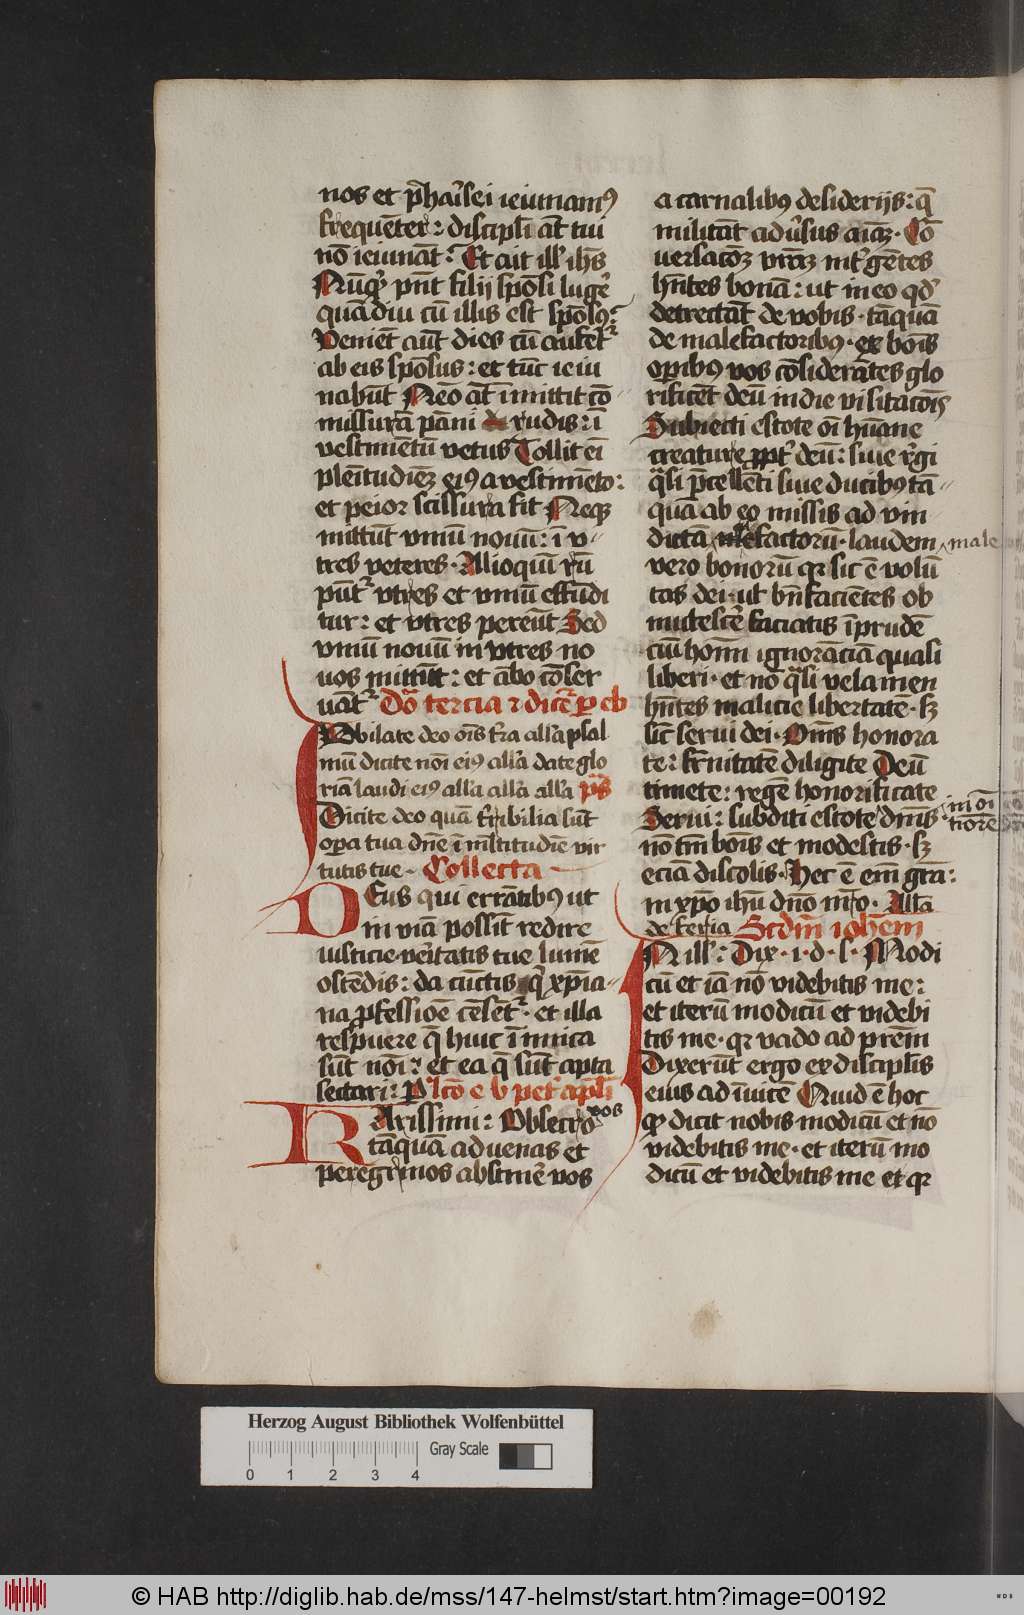 nos et pͬhaisei ieiunamꝰ
frequēter: discipl̄i aūt tui
nō ieiunāt: Et ait illꝭ ihs̄
Nūqͥd pn̄t filij spōsi lugeˀ
quādiu cū illis est spōsꝰ?
Veniēt aūt dies cū aufertˀ
ab eis spōsus: et tūc ieiu
nabūt Nēo at̄ īmittit cō-
missurā pāni rudis: ī
vestimētū vetus Tollit eī
plēitudīeꝫ eiꝰ a vestimēto:
et peior scissura fit Neqꝫ
mittūt vinū nouū: ī v-
tres veteres. Alioquī rū
pūtˀ vtres et vinū effūdi
tur: et vtres pereūt Sed
vinū nouū in vtres no
uos mittūt: et ābo cōser
uātˀ Dōͣ tercia ⁊ dicēˀ ꝑ eb
Jubilate deo oīs tˀra all̄a psal
mū dicite noī eiꝰ all̄a date glo
riā laudi eiꝰ all̄a all̄a all̄a ps̄
Dicite deo quā tˀribilia sūt
opera tua dn̄e ī ml̄titudīe vir
tutis tue. Collecta
DEus qui errātibꝰ ut
in viā possīt redire
iusticie veritatis tue lumē
ostēdis: da cūctis qͥ xp̄ia-
na ꝓfessiōe cēsētˀ. et illa
respuere q̄ huic īimica
sūt noī: et ea q̄ sūt apta
sectari: P lc̄o e b petˀ apl̄i
KArissimi: Obsecro vos
tāquā aduenas et
peregrinos abstinēˀ vos
a carnalibꝰ desiderijs: q̄
militāt aduˀsus aīaꝫ. Cō
uersacōꝫ vrāꝫ intˀ gētes
hn̄tes bonā: ut in eo qd̓
detrectāt de vobis. tāquā
de malefactoribꝰ. ex boīs
oꝑibꝰ vos cōsiderātes glo
rificēt deū in die visitacōis
Subiecti estote oī hūane
creature ꝓptˀ deū: siue rˀgi
qͣsi p̄cellēti siue ducibꝰ tā-
quā ab eo missis ad vin
dictā malefactorū. laudem male
vero bonorū qꝛ sic ē volū
tas dei. ut bn̄facietes ob
mutescēˀ faciatis īprudē
ciū hoīm ignorāciā quasi
liberi. et nō qͣsi velamen
hn̄tes malicie libertatē. sꝫ
sic̄ serui dei. Oīnis honora
te: frˀnitatē diligite Deū
timete: regē honorificate
Serui: subditi estote dn̄is in oī timore
no tm̄ boīs et modestis. sꝫ
eciā discolis. Hec ē em̄ grā:
in xp̄o ihū dn̄o nr̄o. All̄a
de feria Scdm̄ iohēm
IN ill̄: Dix. i. d. s. Modi
cū et iā nō videbitis me:
et iterū modicū et videbi
tis me. qꝛ vado ad prēm
Dixerūt ergo ex discipl̄is
eius ad īuicē Quid ē hoc
qd̓ dicit nobis modicū et nō
videbitis me. et iterū mo
dicū et videbitis me et qꝛ
Herzog August Bibliothek Wolfenbüttel
0 1 2 3 4
Gray Scale
© HAB http://diglib.hab.de/mss/147-helmst/start.htm?image=00192